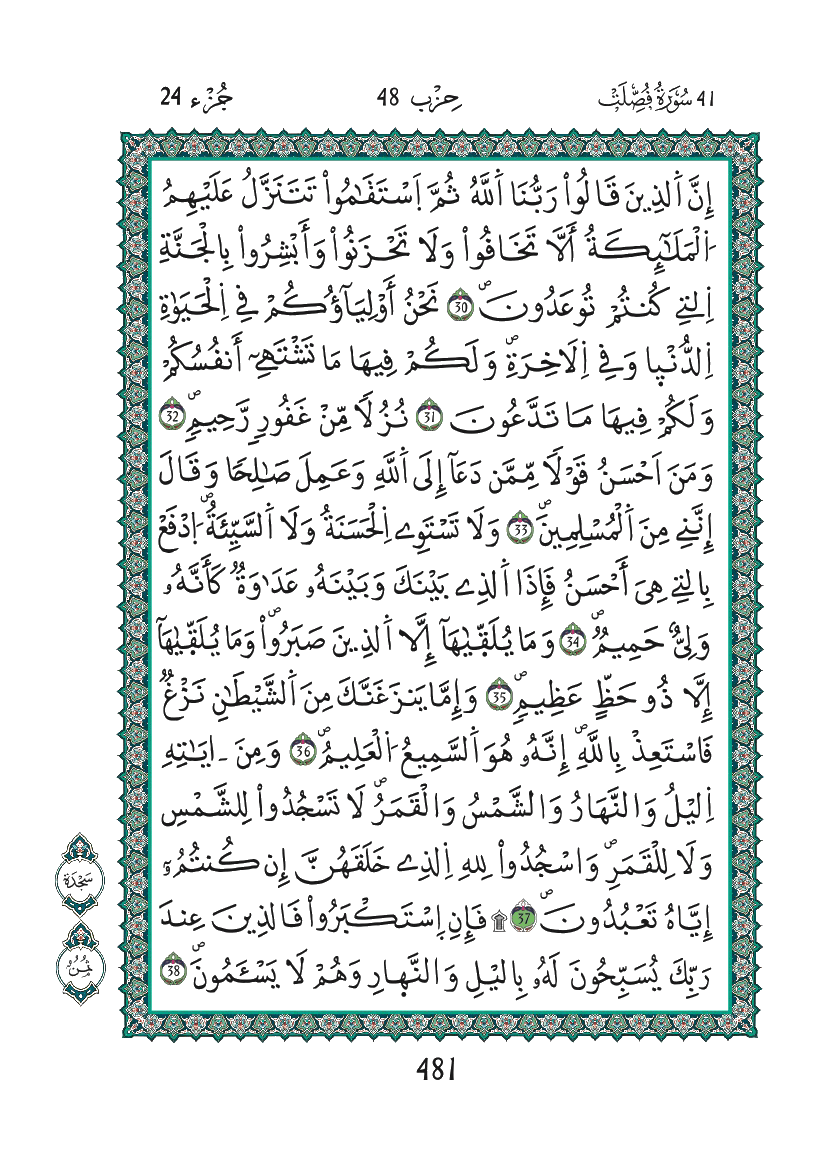 41 سُورَةُ فُصِّلَتْ حِزْب 48 جُزْء 24
إِنَّ اَ۬لذِينَ قَالُواْ رَبُّنَا اَ۬للَّهُ ثُمَّ اَ۪سْتَقَٰمُواْ تَتَنَزَّلُ عَلَيْهِمُ
اُ۬لْمَلَٰٓئِكَةُ أَلَّا تَخَافُواْ وَلَا تَحْزَنُواْ وَأَبْشِرُواْ بِالْجَنَّةِ
اِ۬لتِے كُنتُمْ تُوعَدُونَۖ 30 نَحْنُ أَوْلِيَآؤُكُمْ فِے اِ۬لْحَيَوٰةِ
اِ۬لدُّنْي۪ا وَفِے اِ۬لَاخِرَةِۖ وَلَكُمْ فِيهَا مَا تَشْتَهِےٓ أَنفُسُكُمْ
وَلَكُمْ فِيهَا مَا تَدَّعُونَ 31 نُزُلًا مِّنْ غَفُورٍ رَّحِيمٍۖ 32
وَمَنَ اَحْسَنُ قَوْلًا مِّمَّن دَعَآ إِلَى اَ۬للَّهِ وَعَمِلَ صَٰلِحًا وَقَالَ
إِنَّنِے مِنَ اَ۬لْمُسْلِمِينَۖ 33 وَلَا تَسْتَوِے اِ۬لْحَسَنَةُ وَلَا اَ۬لسَّيِّئَةُۖ اُ۪دْفَعْ
بِالتِے هِيَ أَحْسَنُ فَإِذَا اَ۬لذِے بَيْنَكَ وَبَيْنَهُۥ عَدَٰوَةٌ كَأَنَّهُۥ
وَلِيٌّ حَمِيمٌۖ 34 وَمَا يُلَقّ۪يٰهَآ إِلَّا اَ۬لذِينَ صَبَرُواْۖ وَمَا يُلَقّ۪يٰهَآ
إِلَّا ذُو حَظٍّ عَظِيمٍۖ 35 وَإِمَّا يَنزَغَنَّكَ مِنَ اَ۬لشَّيْطَٰنِ نَزْغٌ
فَاسْتَعِذْ بِاللَّهِۖ إِنَّهُۥ هُوَ اَ۬لسَّمِيعُ اُ۬لْعَلِيمُۖ 36 وَمِنَ ـ ايَٰتِهِ
اِ۬ليْلُ وَالنَّهَارُ وَالشَّمْسُ وَالْقَمَرُۖ لَا تَسْجُدُواْ لِلشَّمْسِ
وَلَا لِلْقَمَرِۖ وَاسْجُدُواْ لِلهِ اِ۬لذِے خَلَقَهُنَّ إِن كُنتُمُۥٓ
إِيَّاهُ تَعْبُدُونَۖ 37 ۩ فَإِنِ اِ۪سْتَكْبَرُواْ فَالذِينَ عِندَ
رَبِّكَ يُسَبِّحُونَ لَهُۥ بِاليْلِ وَالنَّه۪ارِ وَهُمْ لَا يَسْـَٔمُونَۖ 38
سَجْدَة
ثُمُنُ
481